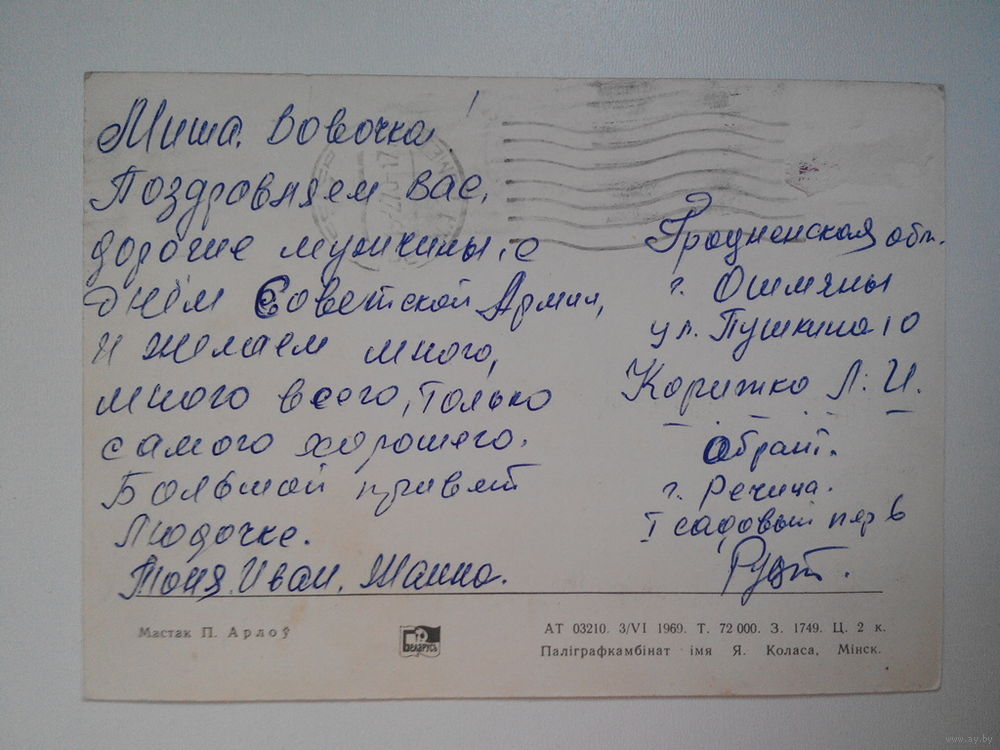 Миша, Вовочка!
Поздравляем вас,
дорогие мужчины, с
днём Советской Армии,
и желаем много,
много всего, только
самого хорошего.
Большой привет
Людочке.
Тоня. Иван. Жанна.
Гродненская обл.
г. Ошмяны
ул. Пушкина 10
Корижко Л. И.
Обрат.
г. Речица.
I садовый пер 6
Мастак П. Арлоў
БЕЛАРУСЬ
АТ 03210. 3/VI 1969. Т. 72 000. З. 1749. Ц. 2 к.
Паліграфкамбінат імя Я. Коласа, Мінск.
www.ay.by